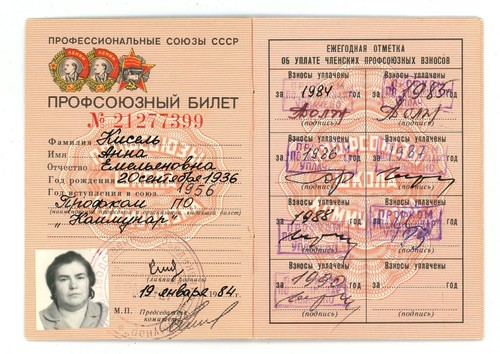 ПРОФЕССИОНАЛЬНЫЕ СОЮЗЫ СССР
ПРОФСОЮЗНЫЙ БИЛЕТ
№ 21277399
Фамилия Кисель
Имя Анна
Отчество Емельяновна
Год рождения 20 сентября 1936
Год вступления в союз 1956
Профком ПО
"Коммунар"
(личная подпись)
19 января 1984 г.
М.П. Председатель
комитета
ЕЖЕГОДНАЯ ОТМЕТКА
ОБ УПЛАТЕ ЧЛЕНСКИХ ПРОФСОЮЗНЫХ ВЗНОСОВ
Взносы уплачены Взносы уплачены
за 1984 год за 1985 год
(подпись) (подпись)
Взносы уплачены Взносы уплачены
за 1986 год за 1987 год
(подпись) (подпись)
Взносы уплачены Взносы уплачены
за 1988 год за год
ПРОФКОМ
(подпись) (подпись)
Взносы уплачены Взносы уплачены
за 1990 год за год
(подпись) (подпись)